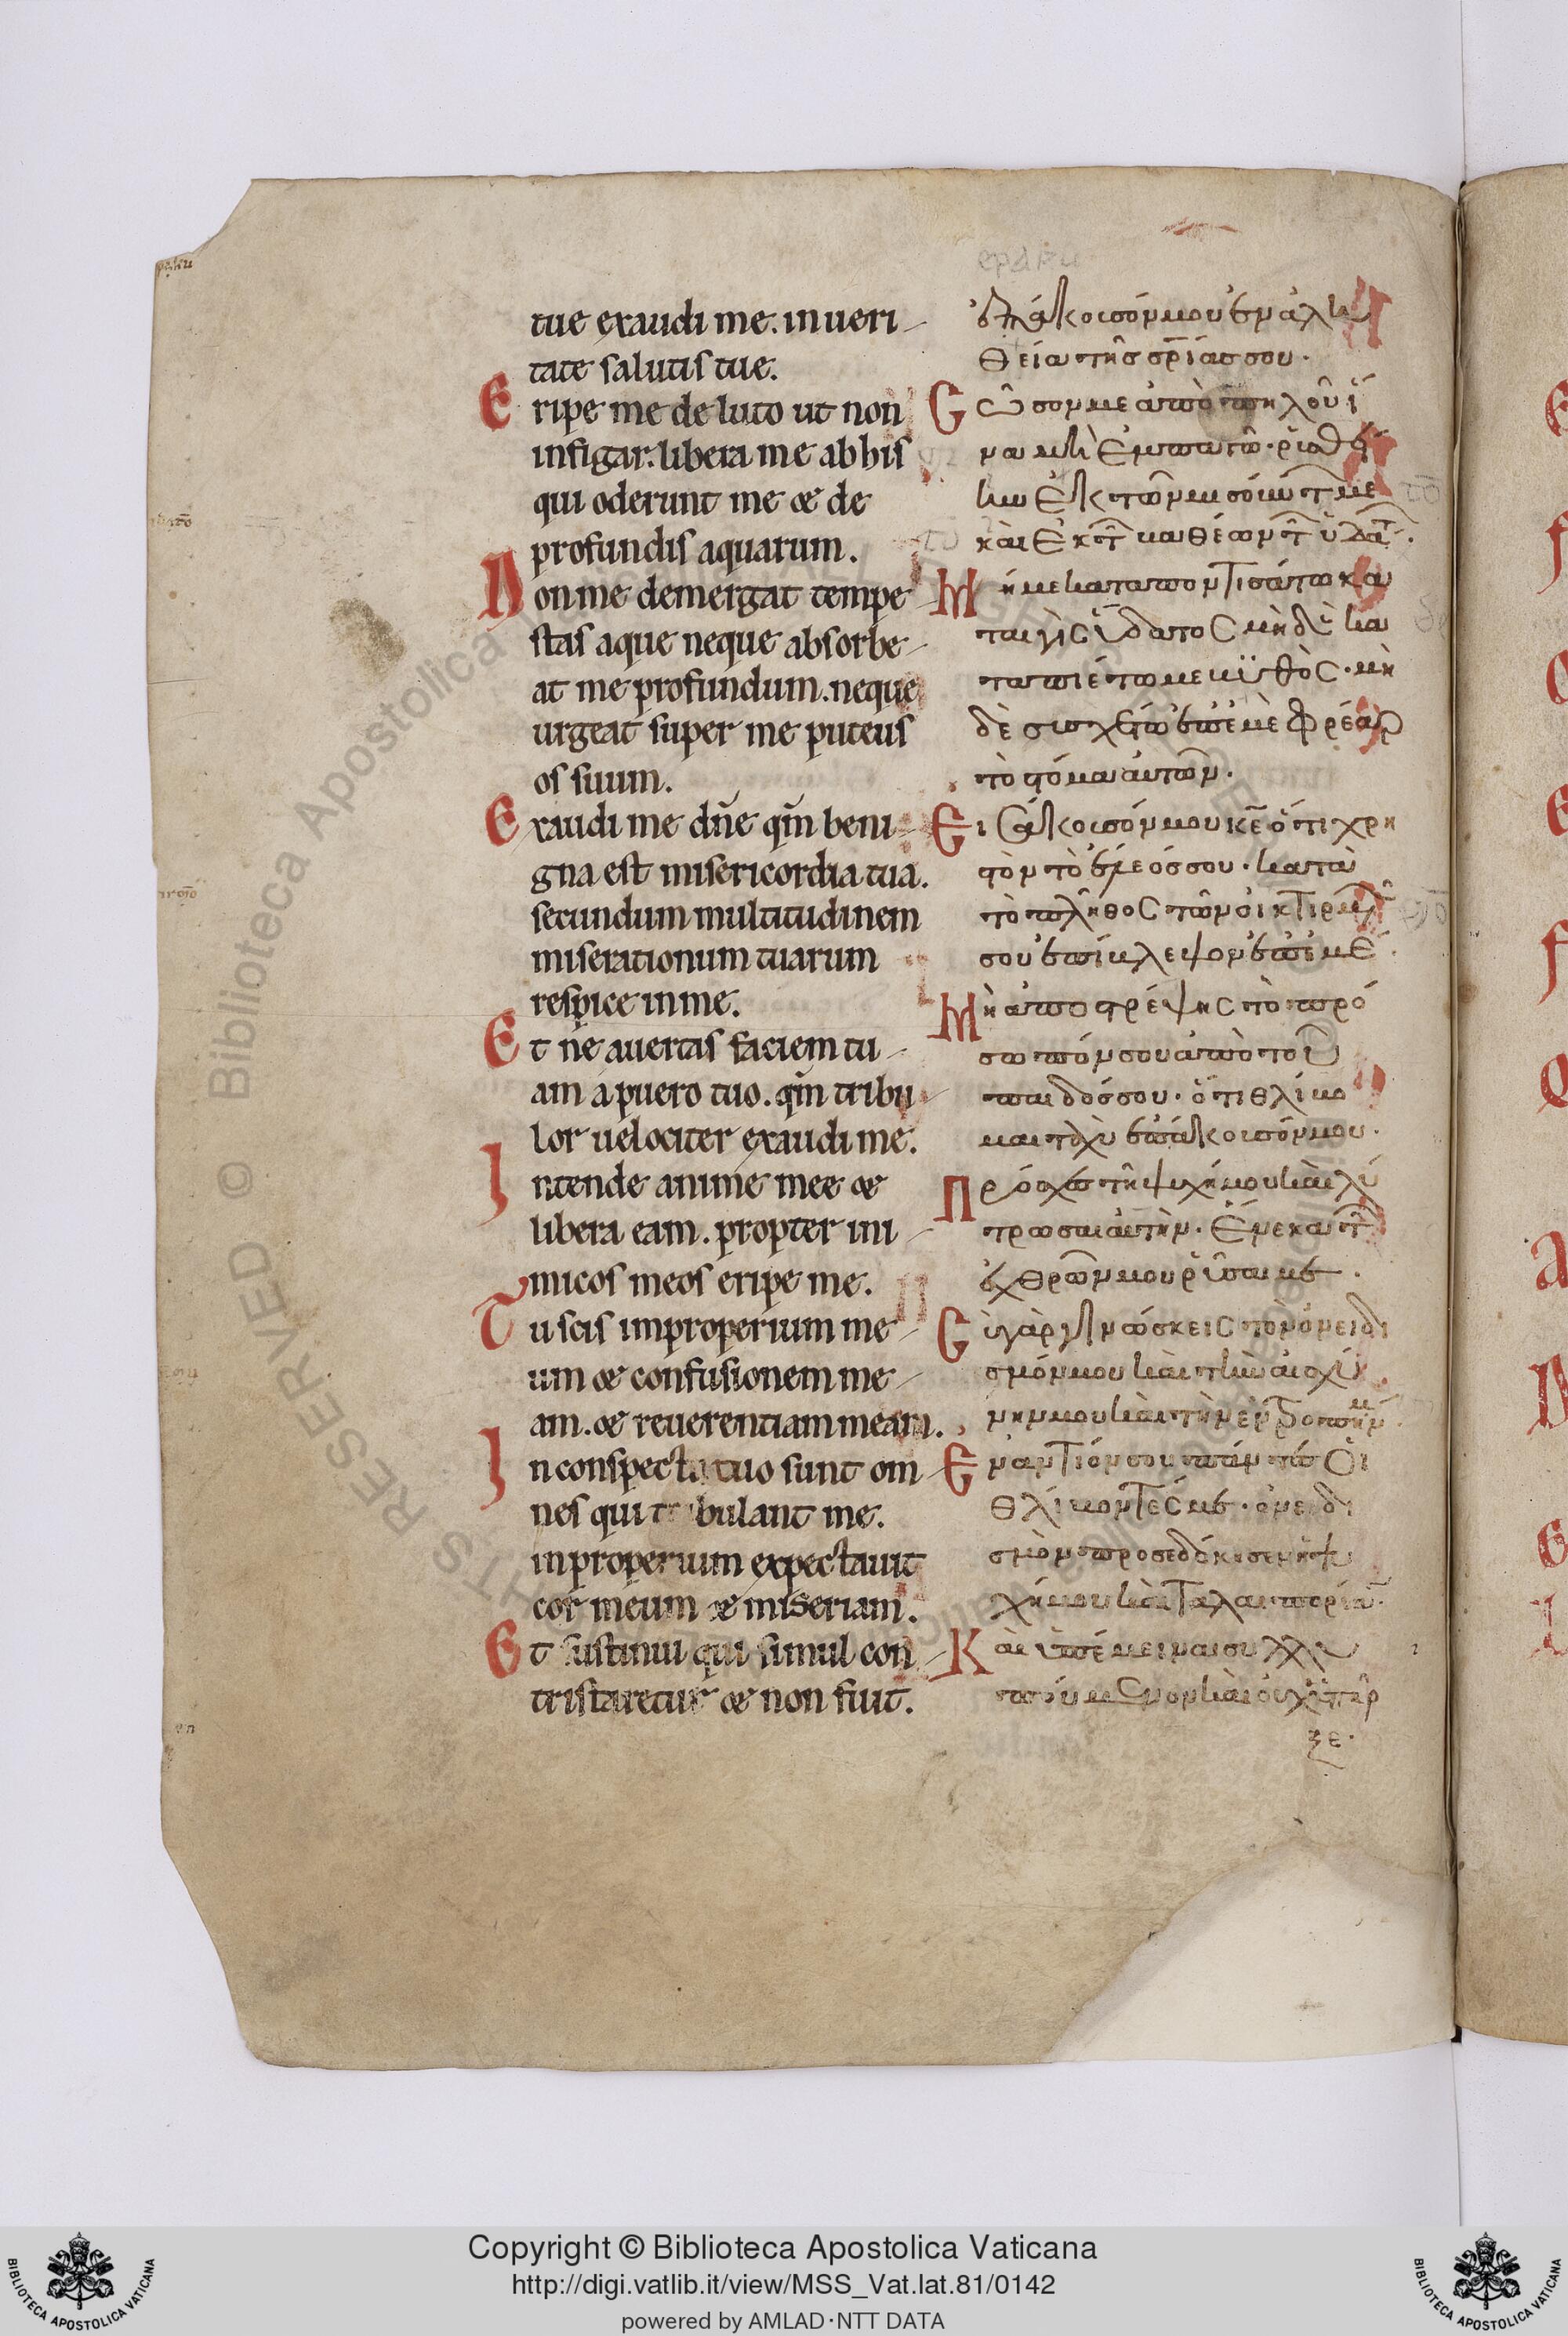 tue exaudi me. in ueri-
tate salutis tue.
Eripe me de luto ut non
infigar. libera me ab his
qui oderunt me & de
profundis aquarum.
Non me demergat tempe
stas aque neque absorbe-
at me profundum. neque
urgeat super me puteus
os suum.
Exaudi me dñe qm̄ beni-
gna est misericordia tua.
secundum multitudinem
miserationum tuarum
respice in me.
Et ne auertas faciem tu-
am a puero tuo. qm̄ tribu-
lor uelociter exaudi me.
Intende anime mee &
libera eam. propter ini-
micos meos eripe me.
Tu scis improperium me-
um & confusionem me-
am. & reuerentiam meam.
In conspectu tuo sunt om-
nes qui tribulant me.
inproperium expectauit
cor meum & miseriam.
Et sustinui qui simul con-
tristaretur & non fuit.
ἐπάκουσόν μου ἐν ἀλη
θεία τῆς σρίας σου.
Σῶσόν με ἀπὸ πηλοῦ ἵ
να μὴ ἐμπαγῶ. ῥυσθεί
ην ἐκ τῶν μισούντων με
καὶ ἐκ τῶν βαθέων τῶν ὑδάτ.
Μή με καταποντισάτω κα
ταιγὶς ὕδατος μηδὲ κα
ταπιέτω με βυθὸς. μη
δὲ συσχέτω ἐπ' ἐμὲ φρέαρ
τὸ στόμα αὐτῶν.
Εἰσάκουσόν μου κε ὅτι χρη
στὸν τὸ ἔλεός σου. κατὰ
τὸ πλῆθος τῶν οἰκτιρμῶ
σου ἐπίβλεψον ἐπ' ἐμέ.
Μὴ ἀποστρέψης τὸ πρό
σωπόν σου ἀπὸ τοῦ
παιδός σου. ὅτι θλίβο
μαι ταχὺ ἐπάκουσόν μου.
Πρόσχες τῆ ψυχή μου καὶ λύ
τρωσαι αὐτὴν. ἕνεκα τῶ
ἐχθρῶν μου ῥῦσαι με.
Σὺ γὰρ γινώσκεις τὸν ὀνειδι
σμόν μου καὶ τὴν αἰσχύ
νην μου καὶ τὴν ἐντροπήν μ
Ἐναντίον σου πάντες οἱ
θλίβοντές με. ὀνειδι
σμὸν προσεδόκησεν ἡ ψυ
χή μου καὶ ταλαιπορίαν.
Καὶ ὑπέμεινα συλλυ
πούμενον καὶ οὐχ ὑπῆρ
ξε.
Copyright © Biblioteca Apostolica Vaticana
http://digi.vatlib.it/view/MSS_Vat.lat.81/0142
powered by AMLAD·NTT DATA